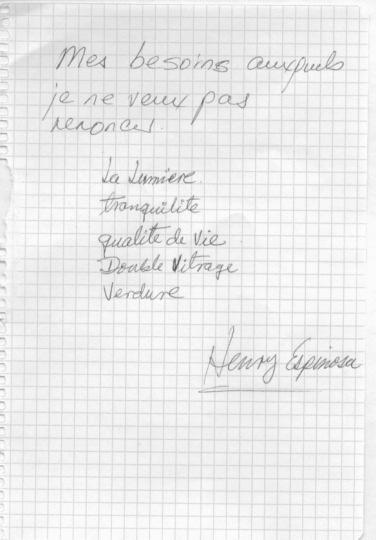 Mes besoins auxquels
je ne veux pas
renoncer.
La Lumiere
tranquilite
qualite de Vie
Double Vitrage
Verdure
Henry Espinosa